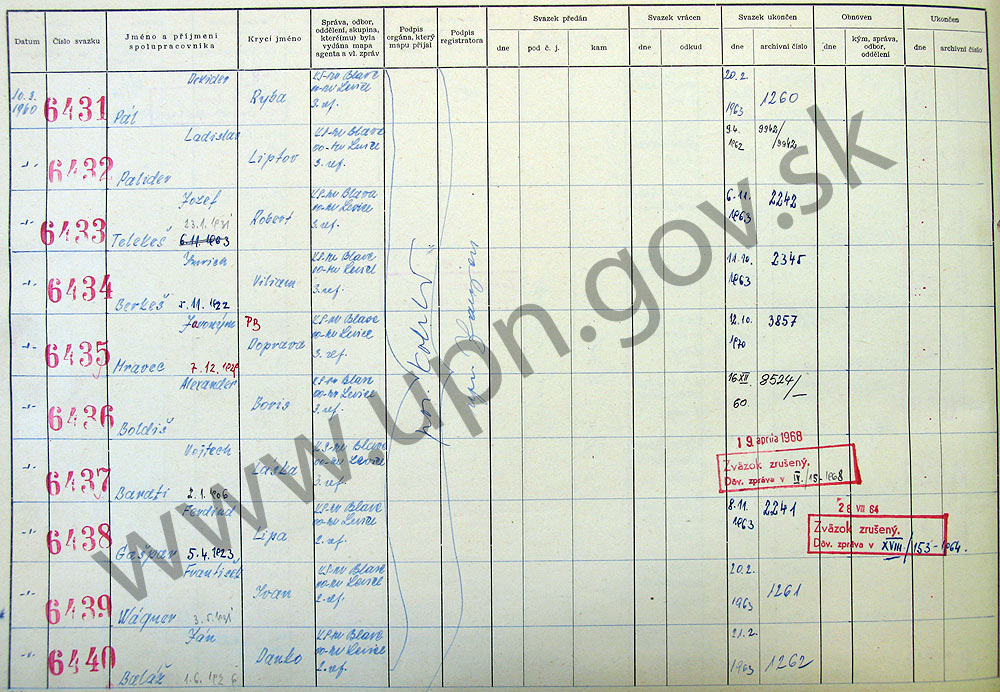 Datum
Číslo svazku
Jméno a příjmení
spolupracovníka
Krycí jméno
Správa, odbor,
oddělení, skupina,
které(mu) byla
vydána mapa
agenta a vl. zpráv
Podpis
orgána, který
mapu přijal
Podpis
registratora
Svazek předán
dne
pod č. j.
kam
Svazek vrácen
dne
odkud
Svazek ukončen
dne
archivní číslo
Obnoven
dne
kým, správa,
odbor,
oddělení
Ukončen
dne
archivní číslo
10.3.
1960
6431
Pál
Ryba
KS-mv Blava
oo-mv Levice
3. ref.
20.2.
1963
1260
-„-
6432
Ladislav
Palider
Liptov
KS-mv Blava
oo-mv Levice
3. ref.
9.4.
1962
9942
/9942
-„-
6433
Jozef
23.1.1931
Telekeš
6.11.1903
Robert
KS-mv Blava
oo-mv Levice
3. ref.
6.11.
1963
2242
-„-
6434
Imrich
Berkeš 5.11.1922
Viliam
KS-mv Blava
oo-mv Levice
3. ref.
11.10.
1963
2345
-„-
6435
Mravec 7.12.1928
PB
Doprava
KS-mv Blava
oo-mv Levice
3. ref.
12.10.
1970
3857
-„-
6436
Alexander
Boldiš
Boris
KS-mv Blava
oo-mv Levice
3. ref.
16.XII
60.
8524/-
-„-
6437
Vojtech
Barati 2.1.1906
Laska
KS-mv Blava
oo-mv Levice
3. ref.
19. apríla 1968
Zväzok zrušený.
Dôv. zpráva v IV/15-1968
-„-
6438
Ferdinad
Gašpar 5.4.1923
Lipa
KS-mv Blava
oo-mv Levice
2. ref.
8.11.
1963
2241
28 VII 64
Zväzok zrušený.
Dôv. zpráva v XVIII/153-1964.
-„-
6439
František
Wágner 3.5.1931
Ivan
KS-mv Blava
oo-mv Levice
2. ref.
20.2.
1963
1261
-„-
6440
Ján
Baláž 1.6.1926
Danko
KS-mv Blava
oo-mv Levice
2. ref.
21.2.
1963
1262
www.upn.gov.sk